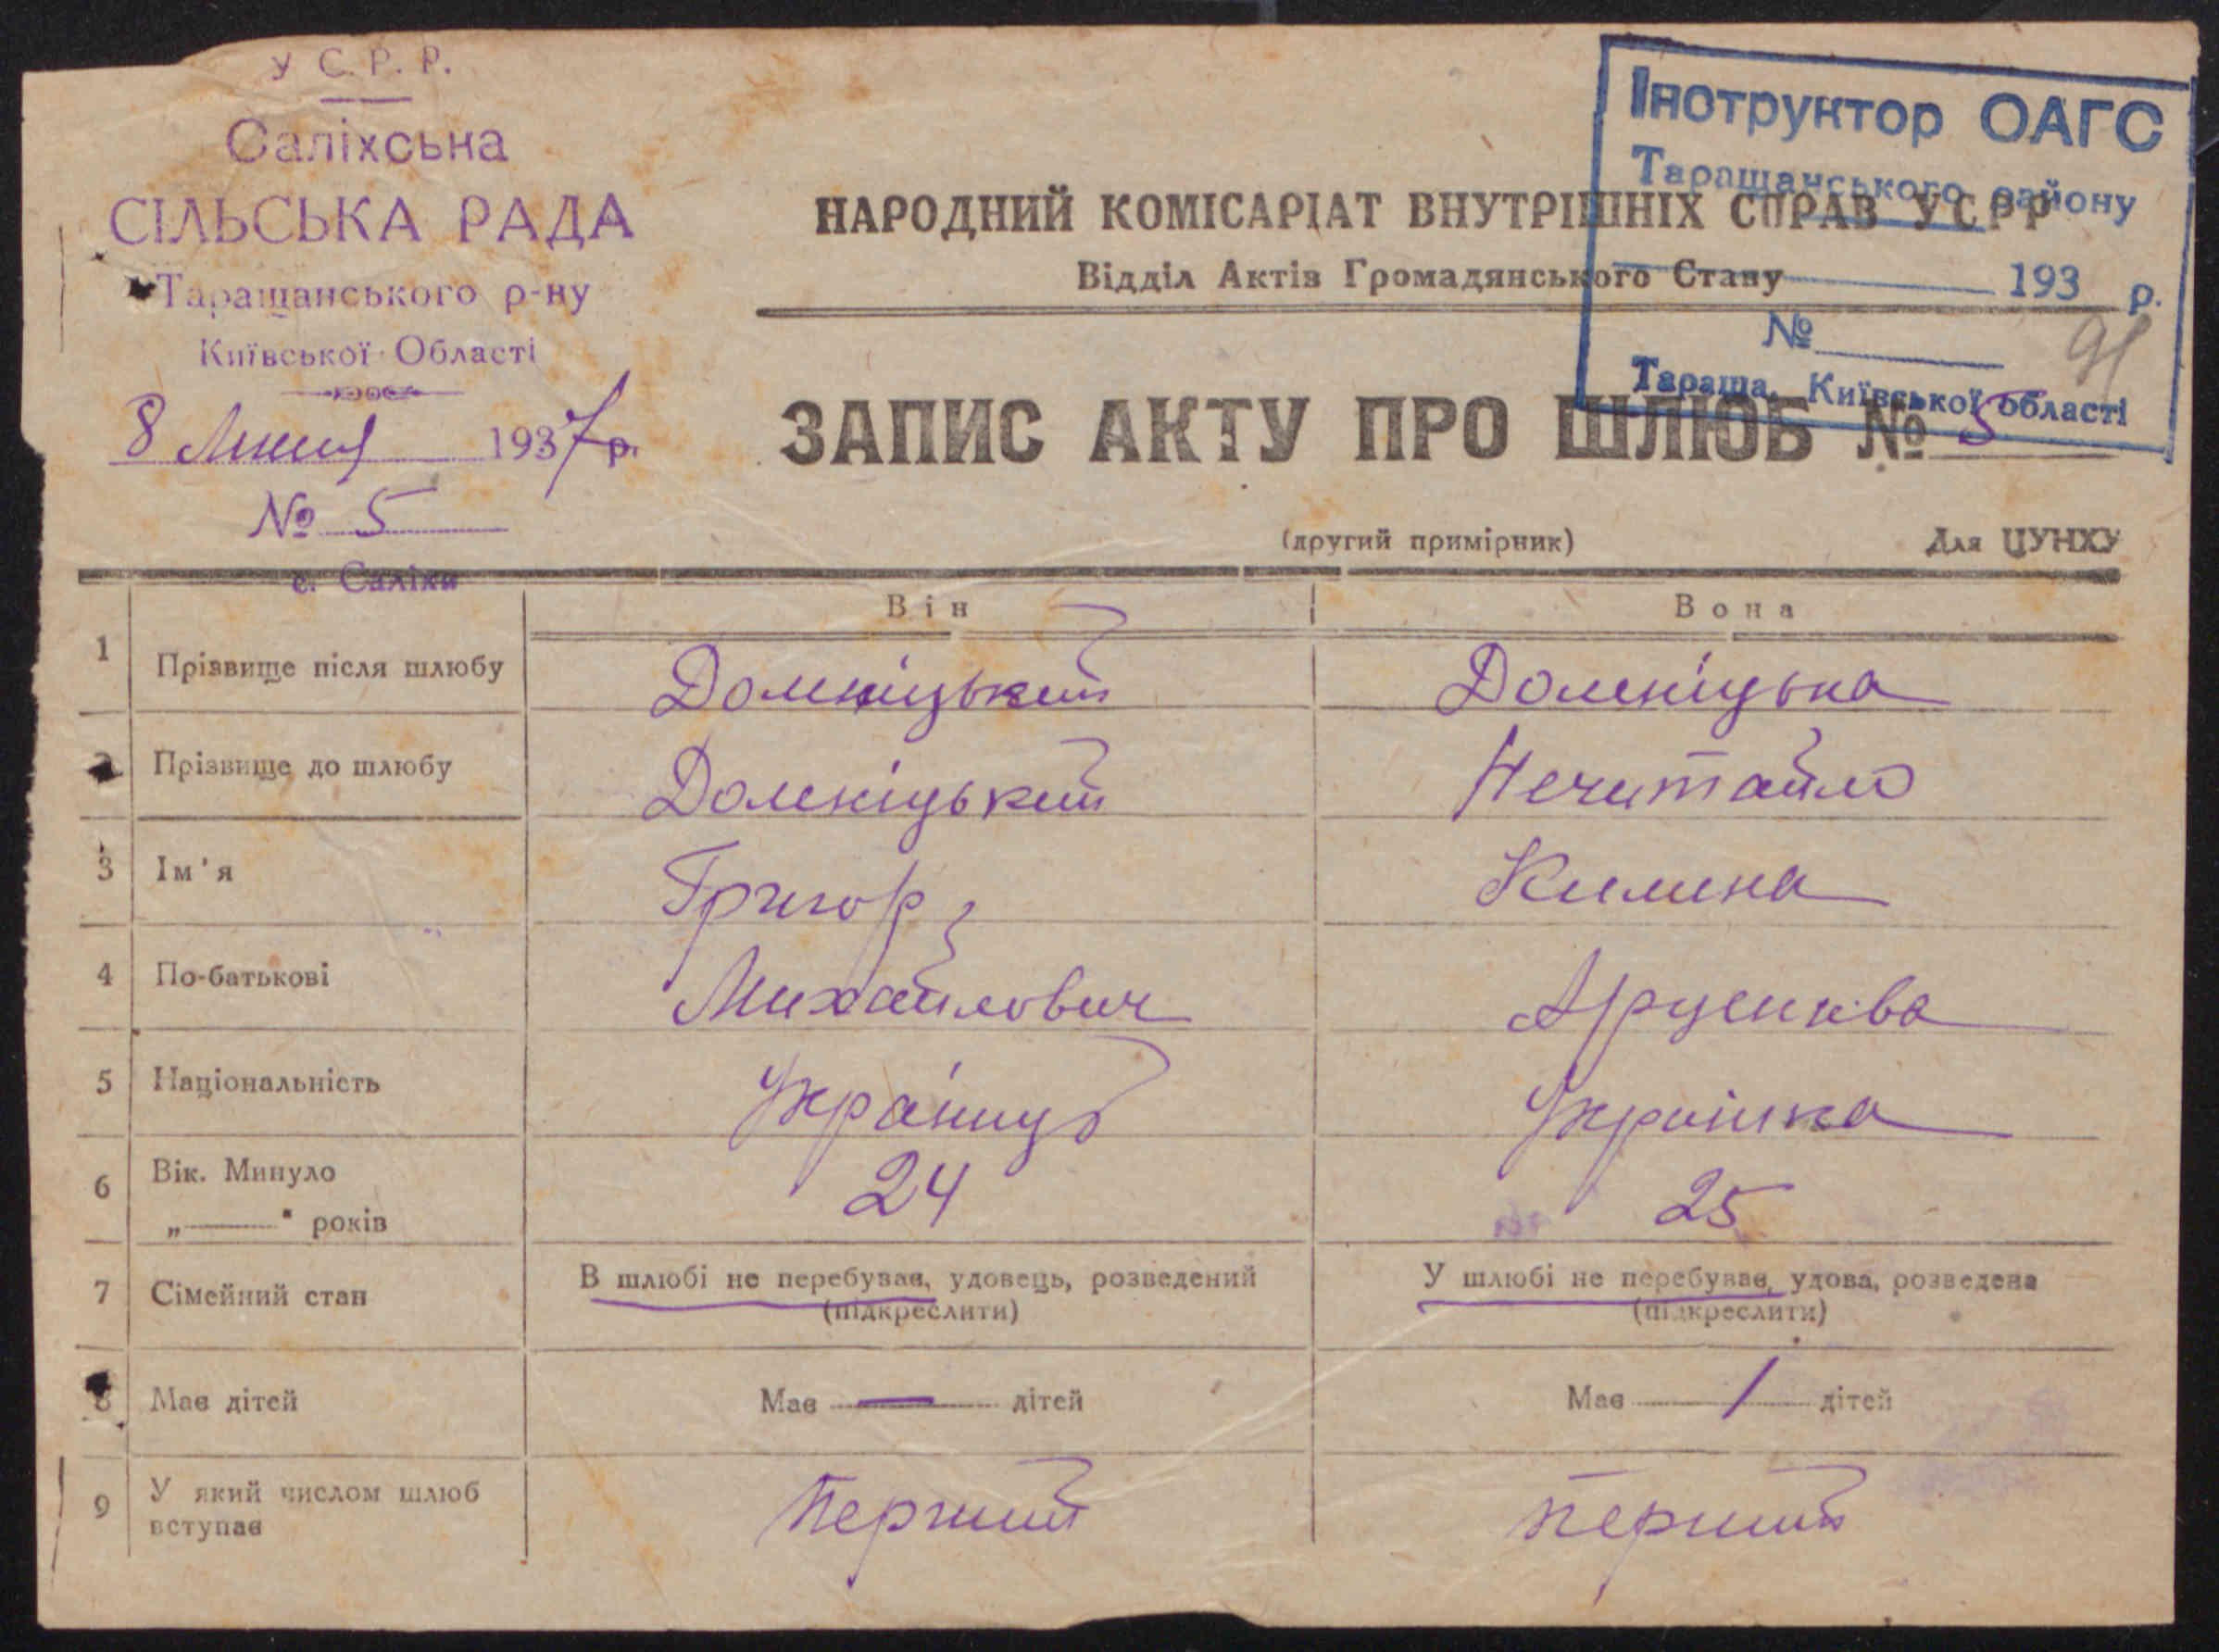 У С. Р. Р.
Саліхська
СІЛЬСЬКА РАДА
Таращанського р-ну
Київської Області
8 Липня 1937 р.
№ 5
с. Саліхи
Інструктор ОАГС
Таращанського району
193 р.
№
Тараща, Київської області
91
НАРОДНИЙ КОМІСАРІАТ ВНУТРІШНІХ СПРАВ УСРР
Відділ Актів Громадянського Стану
ЗАПИС АКТУ ПРО ШЛЮБ № 5
(другий примірник) Для ЦУНХУ
Він Вона
1 Прізвище після шлюбу Доменіцький Доменіцька
2 Прізвище до шлюбу Доменіцький Нечитайло
3 Ім'я Григор Килина
4 По-батькові Михайлович
5 Національність Українць Українка
6 Вік. Минуло
„ " років 24 25
7 Сімейний стан В шлюбі не перебував, удовець, розведений У шлюбі не перебував, удова, розведена
(підкреслити) (підкреслити)
8 Має дітей Має — дітей Має / дітей
9 У який числом шлюб
вступає Перший перший